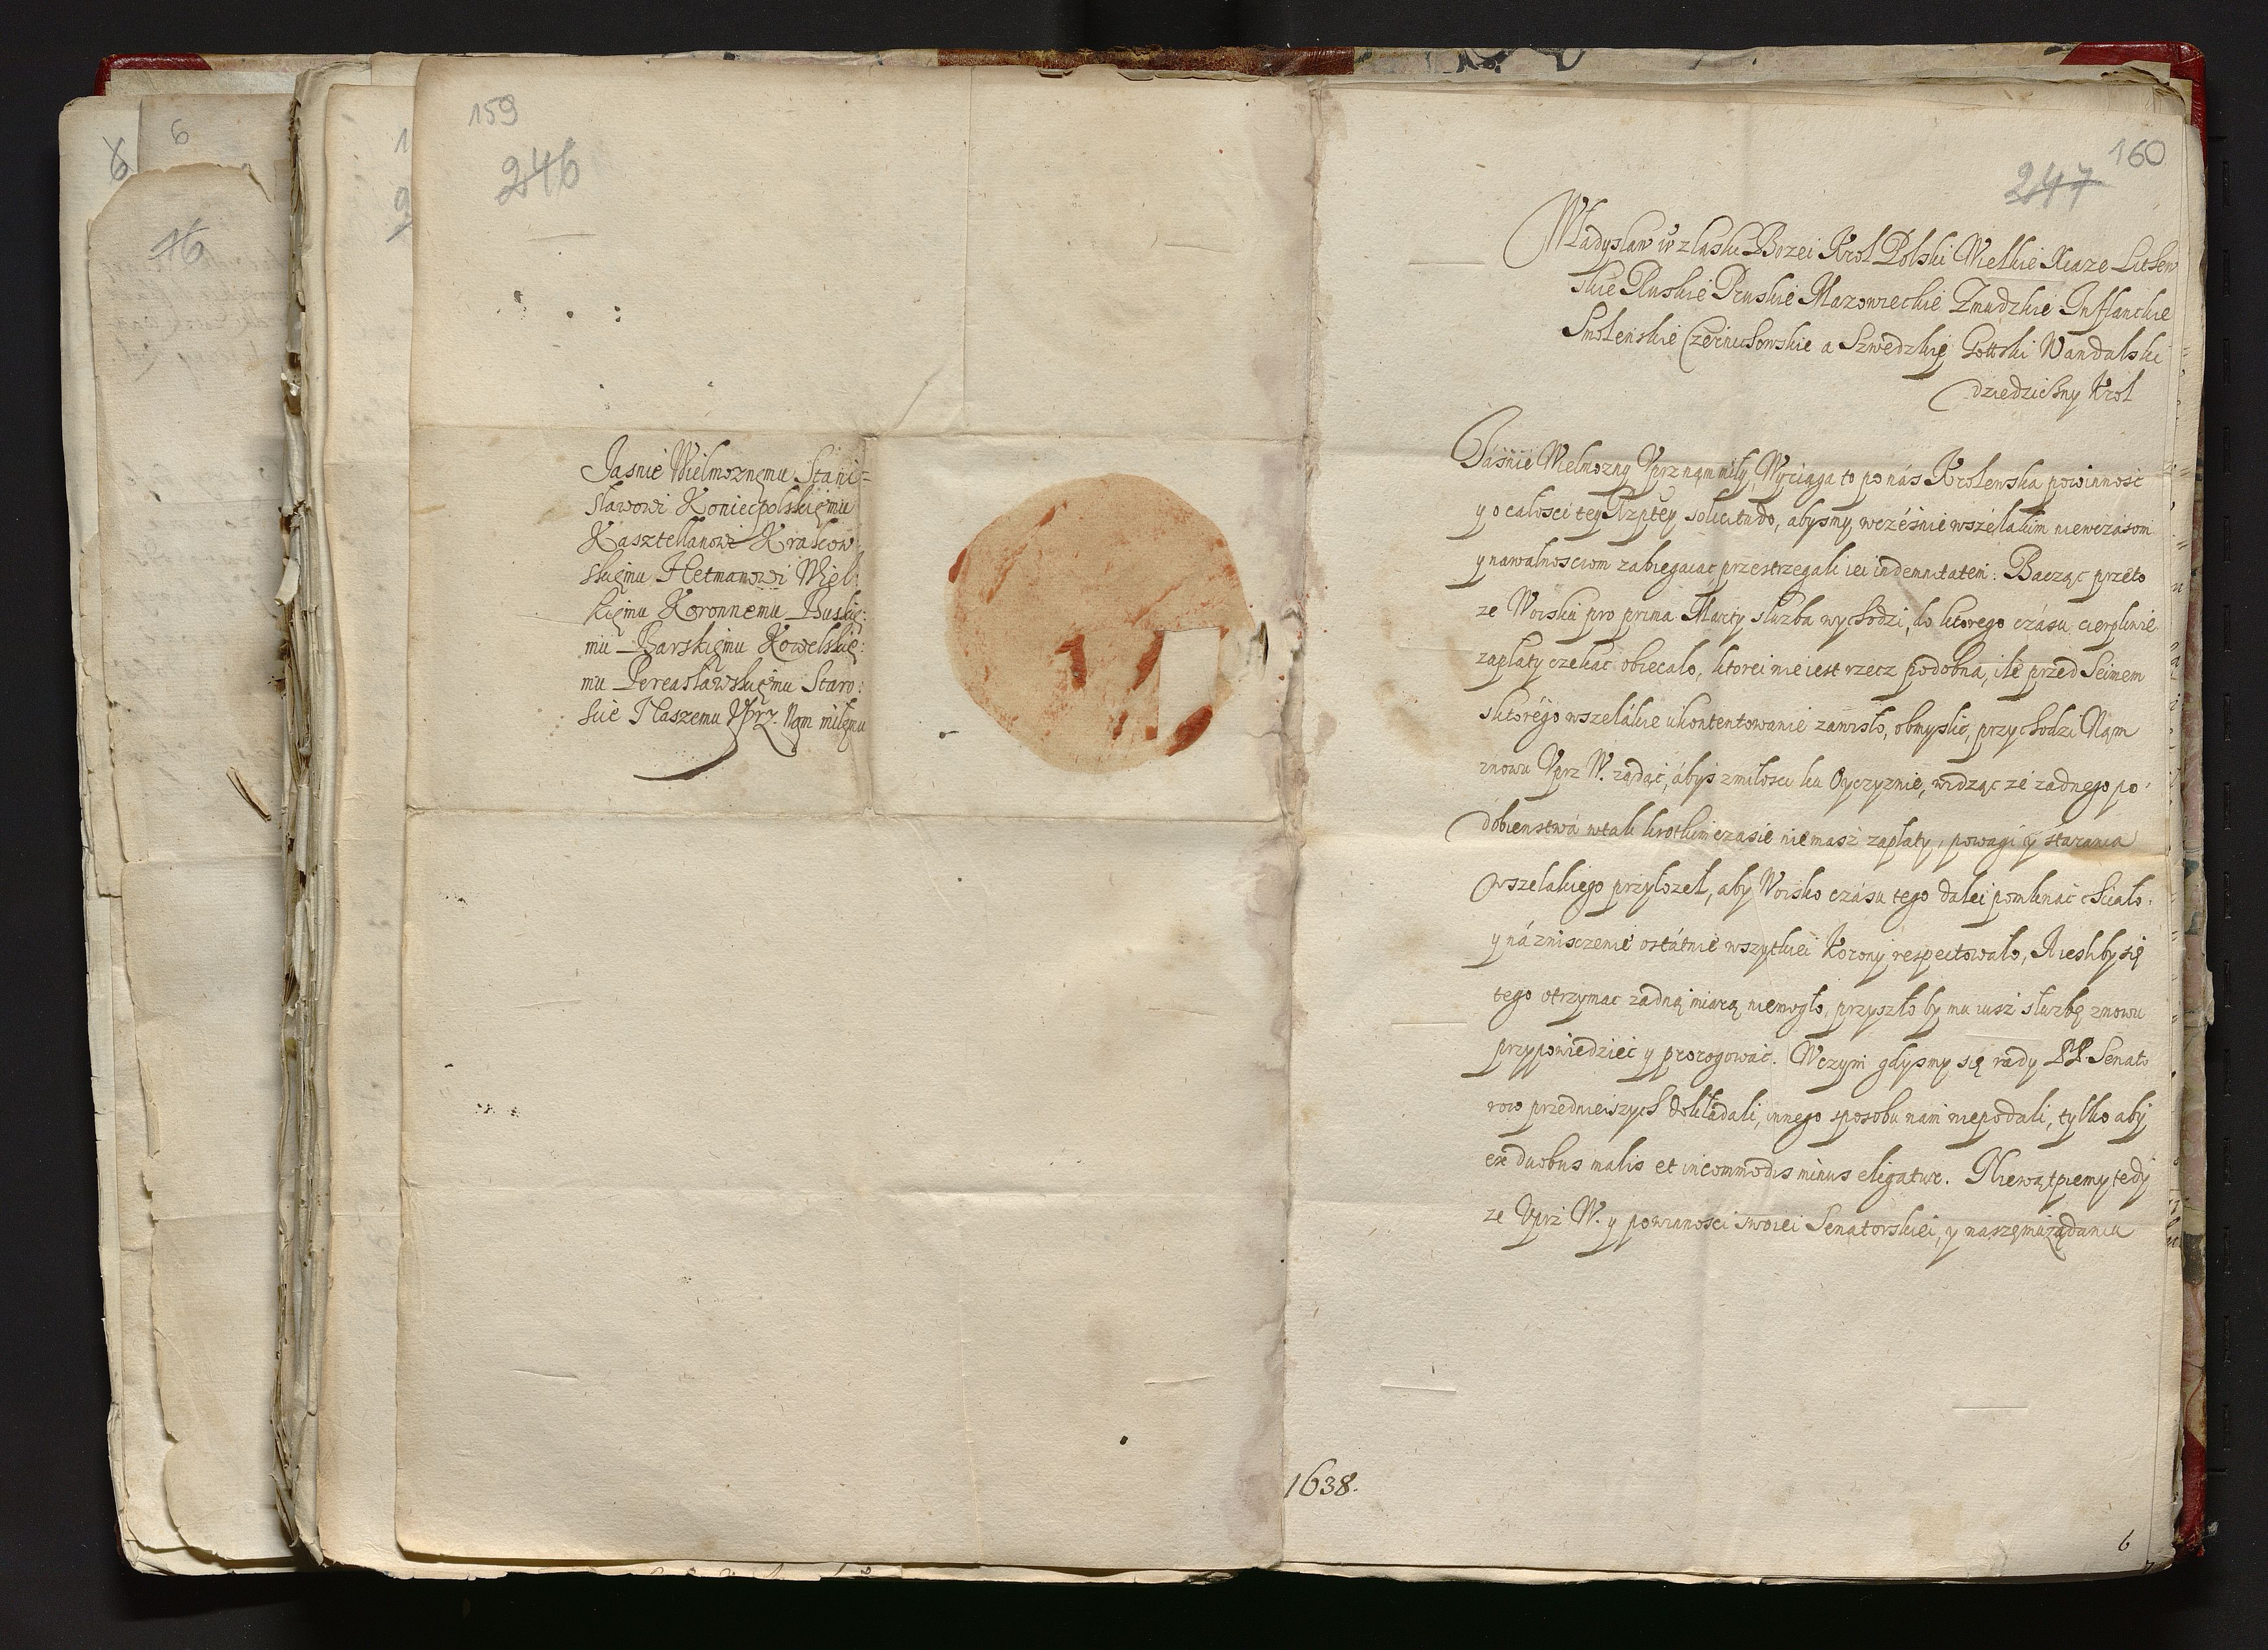 159
246
Jasnie Wielmoznęmu Stani=
sławowi Koniecpolskięmu
Kasztellanowi Krakow
skięmu Hetmanowi Wiel:
kięmu Koronnemu Buskię:
mu Barskięmu Kowelskię:
mu Pereasławskięmu Staro:
scie Naszemu Uprz. Nam miłęmu
6
6
16
160
247
Władysław IV z łaski Bozei Krol Polski Wielkie Xiaze Lithew
skie Ruskie Pruskie Mazowieckie Zmudzkie Inflanckie
Smolenskie Czernichowskie a Szwedzki Gottski Wandalski
dziedziczny Krol
Jasnie Wielmozny Uprz nąm miły, Wyciąga to po nás Krolewska powinnosć
y o całosci tey Rzptey solicitudo, abysmy wcześnie wszelakim niewczasom
y nawalnosciom zabiegaiac przestrzegali iei indemnitatem: Bacząc przeto
ze Woisku pro prima Martij słuzba wychodzi, do ktorego czásu cierpliwie
zapłaty czekać obiecało, ktorei nie iest rzecz podobna, ile przed Seimem
s ktorégo wszelákie ukontentowanie zawisło, obmyslić, przychodzi Nąm
znowu Uprz W. ządać, ábyś z miłosci ku Oyczyznie, widząc ze zadnego po
dobienstwá w tak krotkim czasie niemasz zapłaty, powagi y starania
wszelakiego przyłozeł, aby Woisko czásu tego dalei pomknąć chciało,
y ná znisczenie ostátnie wszytkiei Korony respectowało, A iesliby się
tego otrzymac zadną miarą niemogło, przyszłoby mu iusz słuzbę znowu
przypowiedzieć y prorogować. W czym gdysmy się rady PP. Senato
row przednieiszych dokładali, innego sposobu nam niepodali, tylko aby
ex duobus malis et incommodis minus eligatur. Niewątpiemy tedy
ze Uprz W. y powinnosci swoiei Senatorskiei, y naszęmu ządaniu
1638.
6